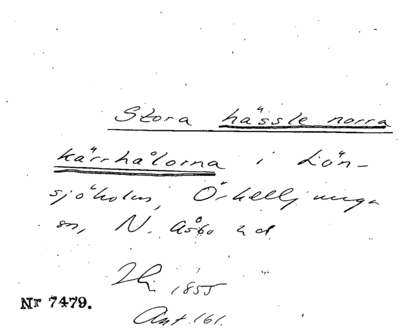 Stora hässle norra
kärrhålorna i Lön-
sjöholm, Örkelljunga
sn, N. Åsbo hd
1855
Nr 7479.
Ant. 161.